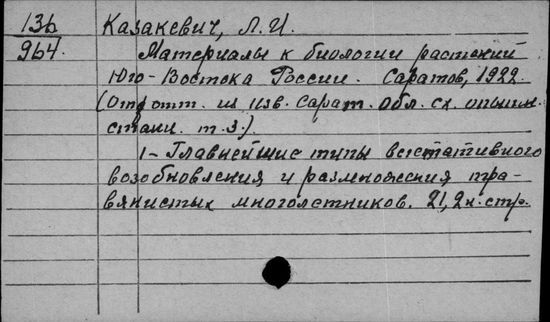 136 Казакевич, Л.И.
964. Материалы к биологии растений
Юго-Востока России. Саратов, 1922.
(Отд. отт. из изв. Сарат. обл. сх. опытн.
станц. т.3.).
1- Главнейшие типы вегетативного
возобновления и размножения тра-
вянистых многолетников. 21, 2 н. стр.